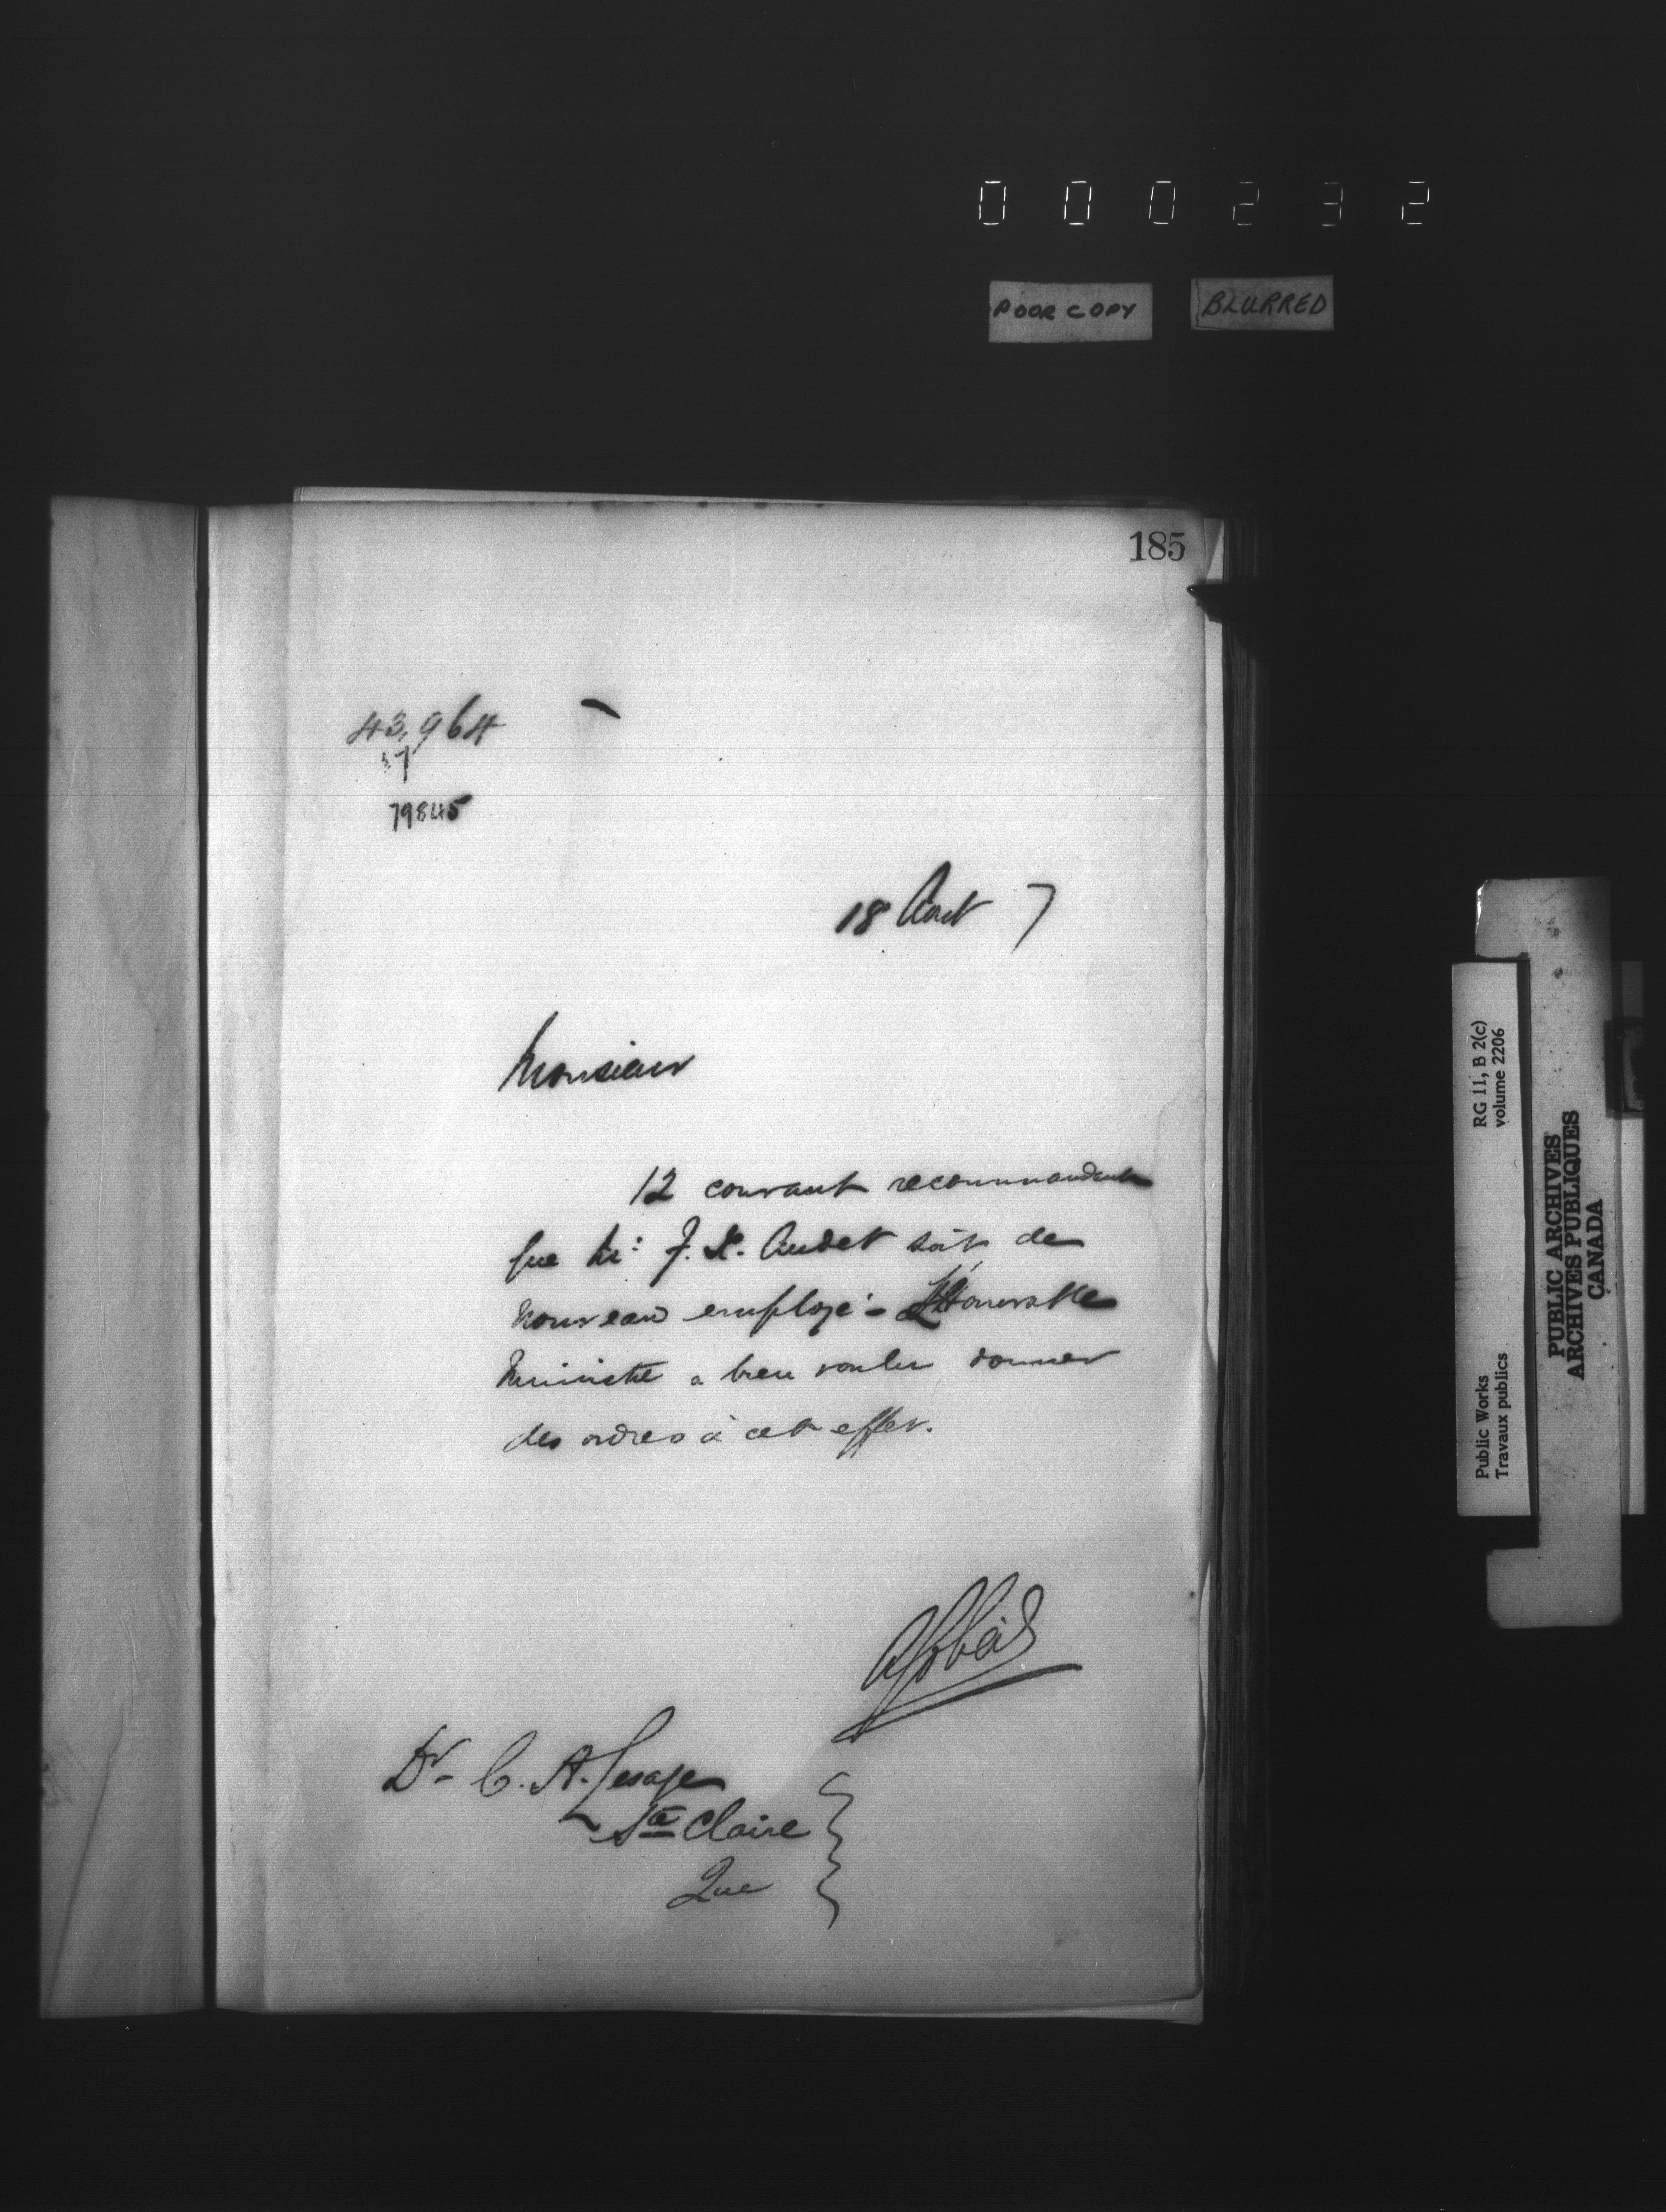 000232
POOR COPY
BLURRED
185
43,964
37
79845
18 Aout 7
Monsieur
12 courant recommandant
que Mr: J. Audet soit de
nouveau employé - L'Honorable
Ministre a bien voulu donner
des ordres à cet effet.
AGobeil
Dr - C. A. Lesage
Ste Claire
Que
RG 11, B 2(c)
volume 2206
Public Works
Travaux publics
PUBLIC ARCHIVES
ARCHIVES PUBLIQUES
CANADA